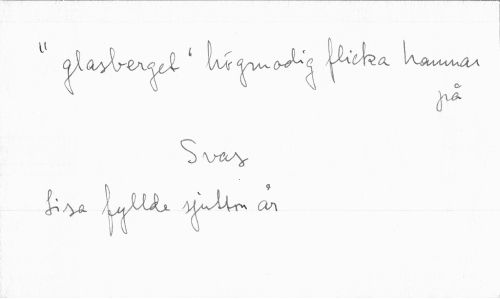 "glasberget" högmodig flicka hamnar
på
Svar
Lisa fyllde sjutton år